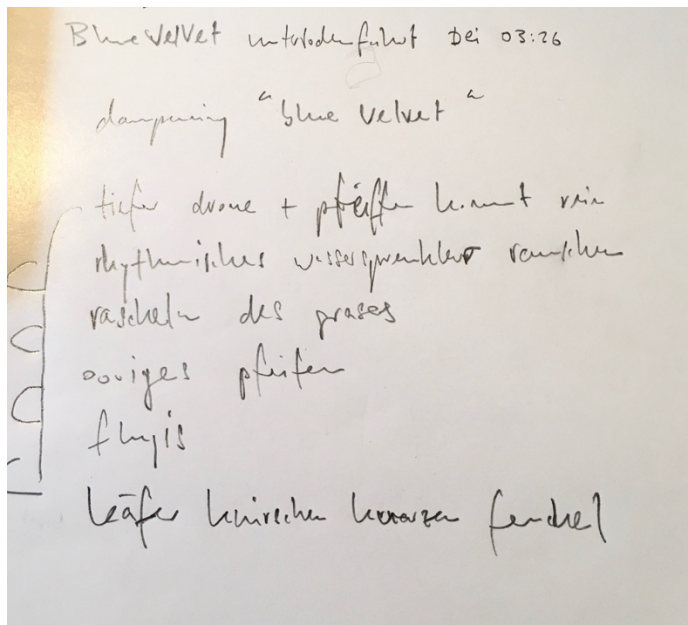 Blue Velvet unterbodenfahrt bei 03:26
dampening "blue velvet"
tiefer drone + pfeiffen kommt rein
rhythmisches wassersprenkler rauschen
rascheln des grases
pfeifen
käfer knirschen knarzen fenchel